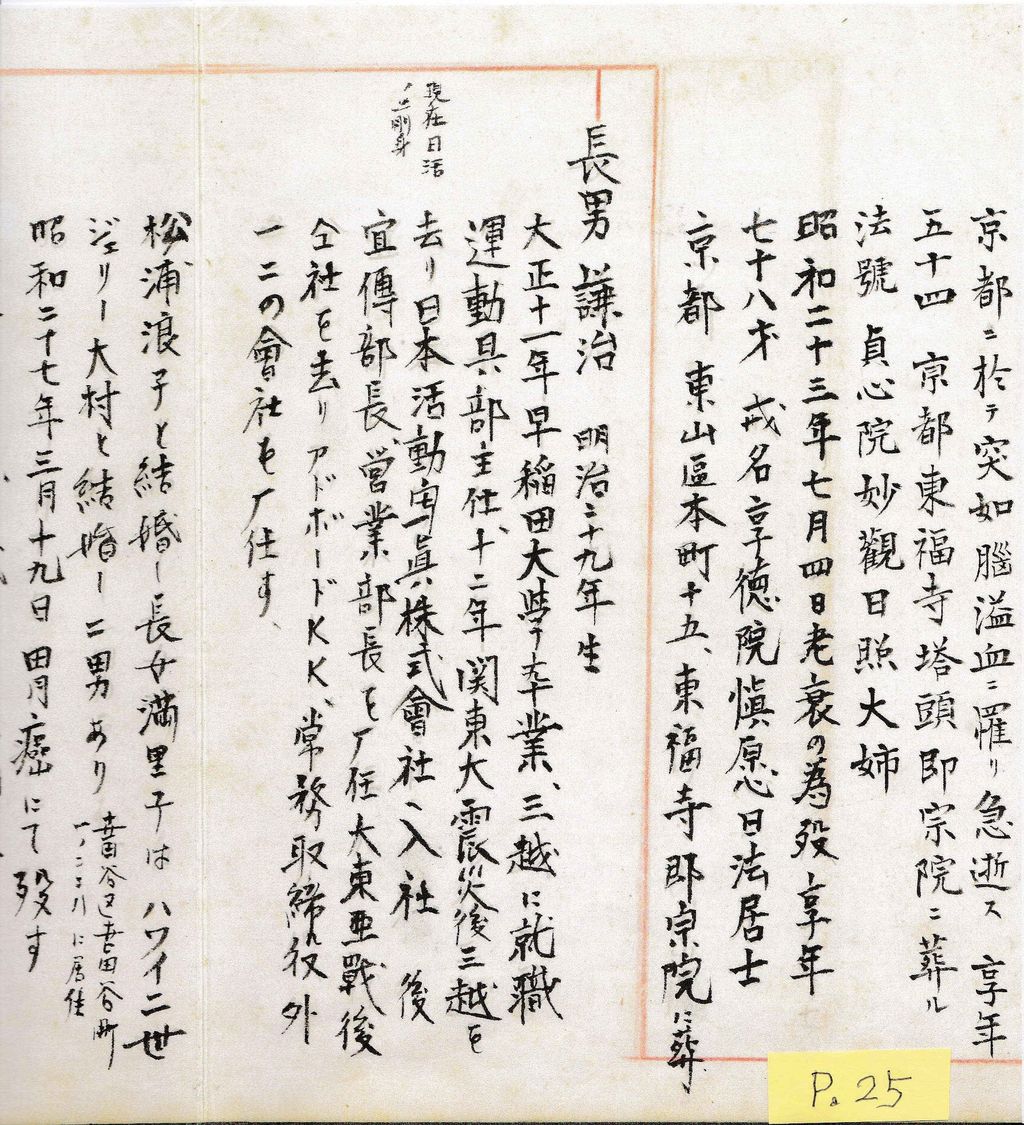 京都ニ於テ突如腦溢血ニ罹リ急逝ス 享年
五十四 京都東福寺塔頭即宗院ニ葬ル
法號 貞心院妙觀日照大姉
昭和二十三年七月四日老衰の為歿 享年
七十八才 戒名享徳院愼原心日法居士
京都 東山區本町十五、東福寺即宗院に葬
長男 謙治 明治二十九年生
大正十一年早稲田大學卒業、三越に就職
運動具部主任、十二年関東大震災後三越を
去リ日本活動写眞株式會社へ入社 後
現在日活
ノ前身
宣傳部長、営業部長を歴任大東亜戰後
仝社を去リアドボードKK、常務取締役外
一二の會社も歴任す、
松浦浪子と結婚し長女満里子は ハワイ二世
ジェリー大村と結婚し二男あり
世田谷区世田谷町
に居住
昭和二十七年三月十九日胃癌にて歿す
P. 25